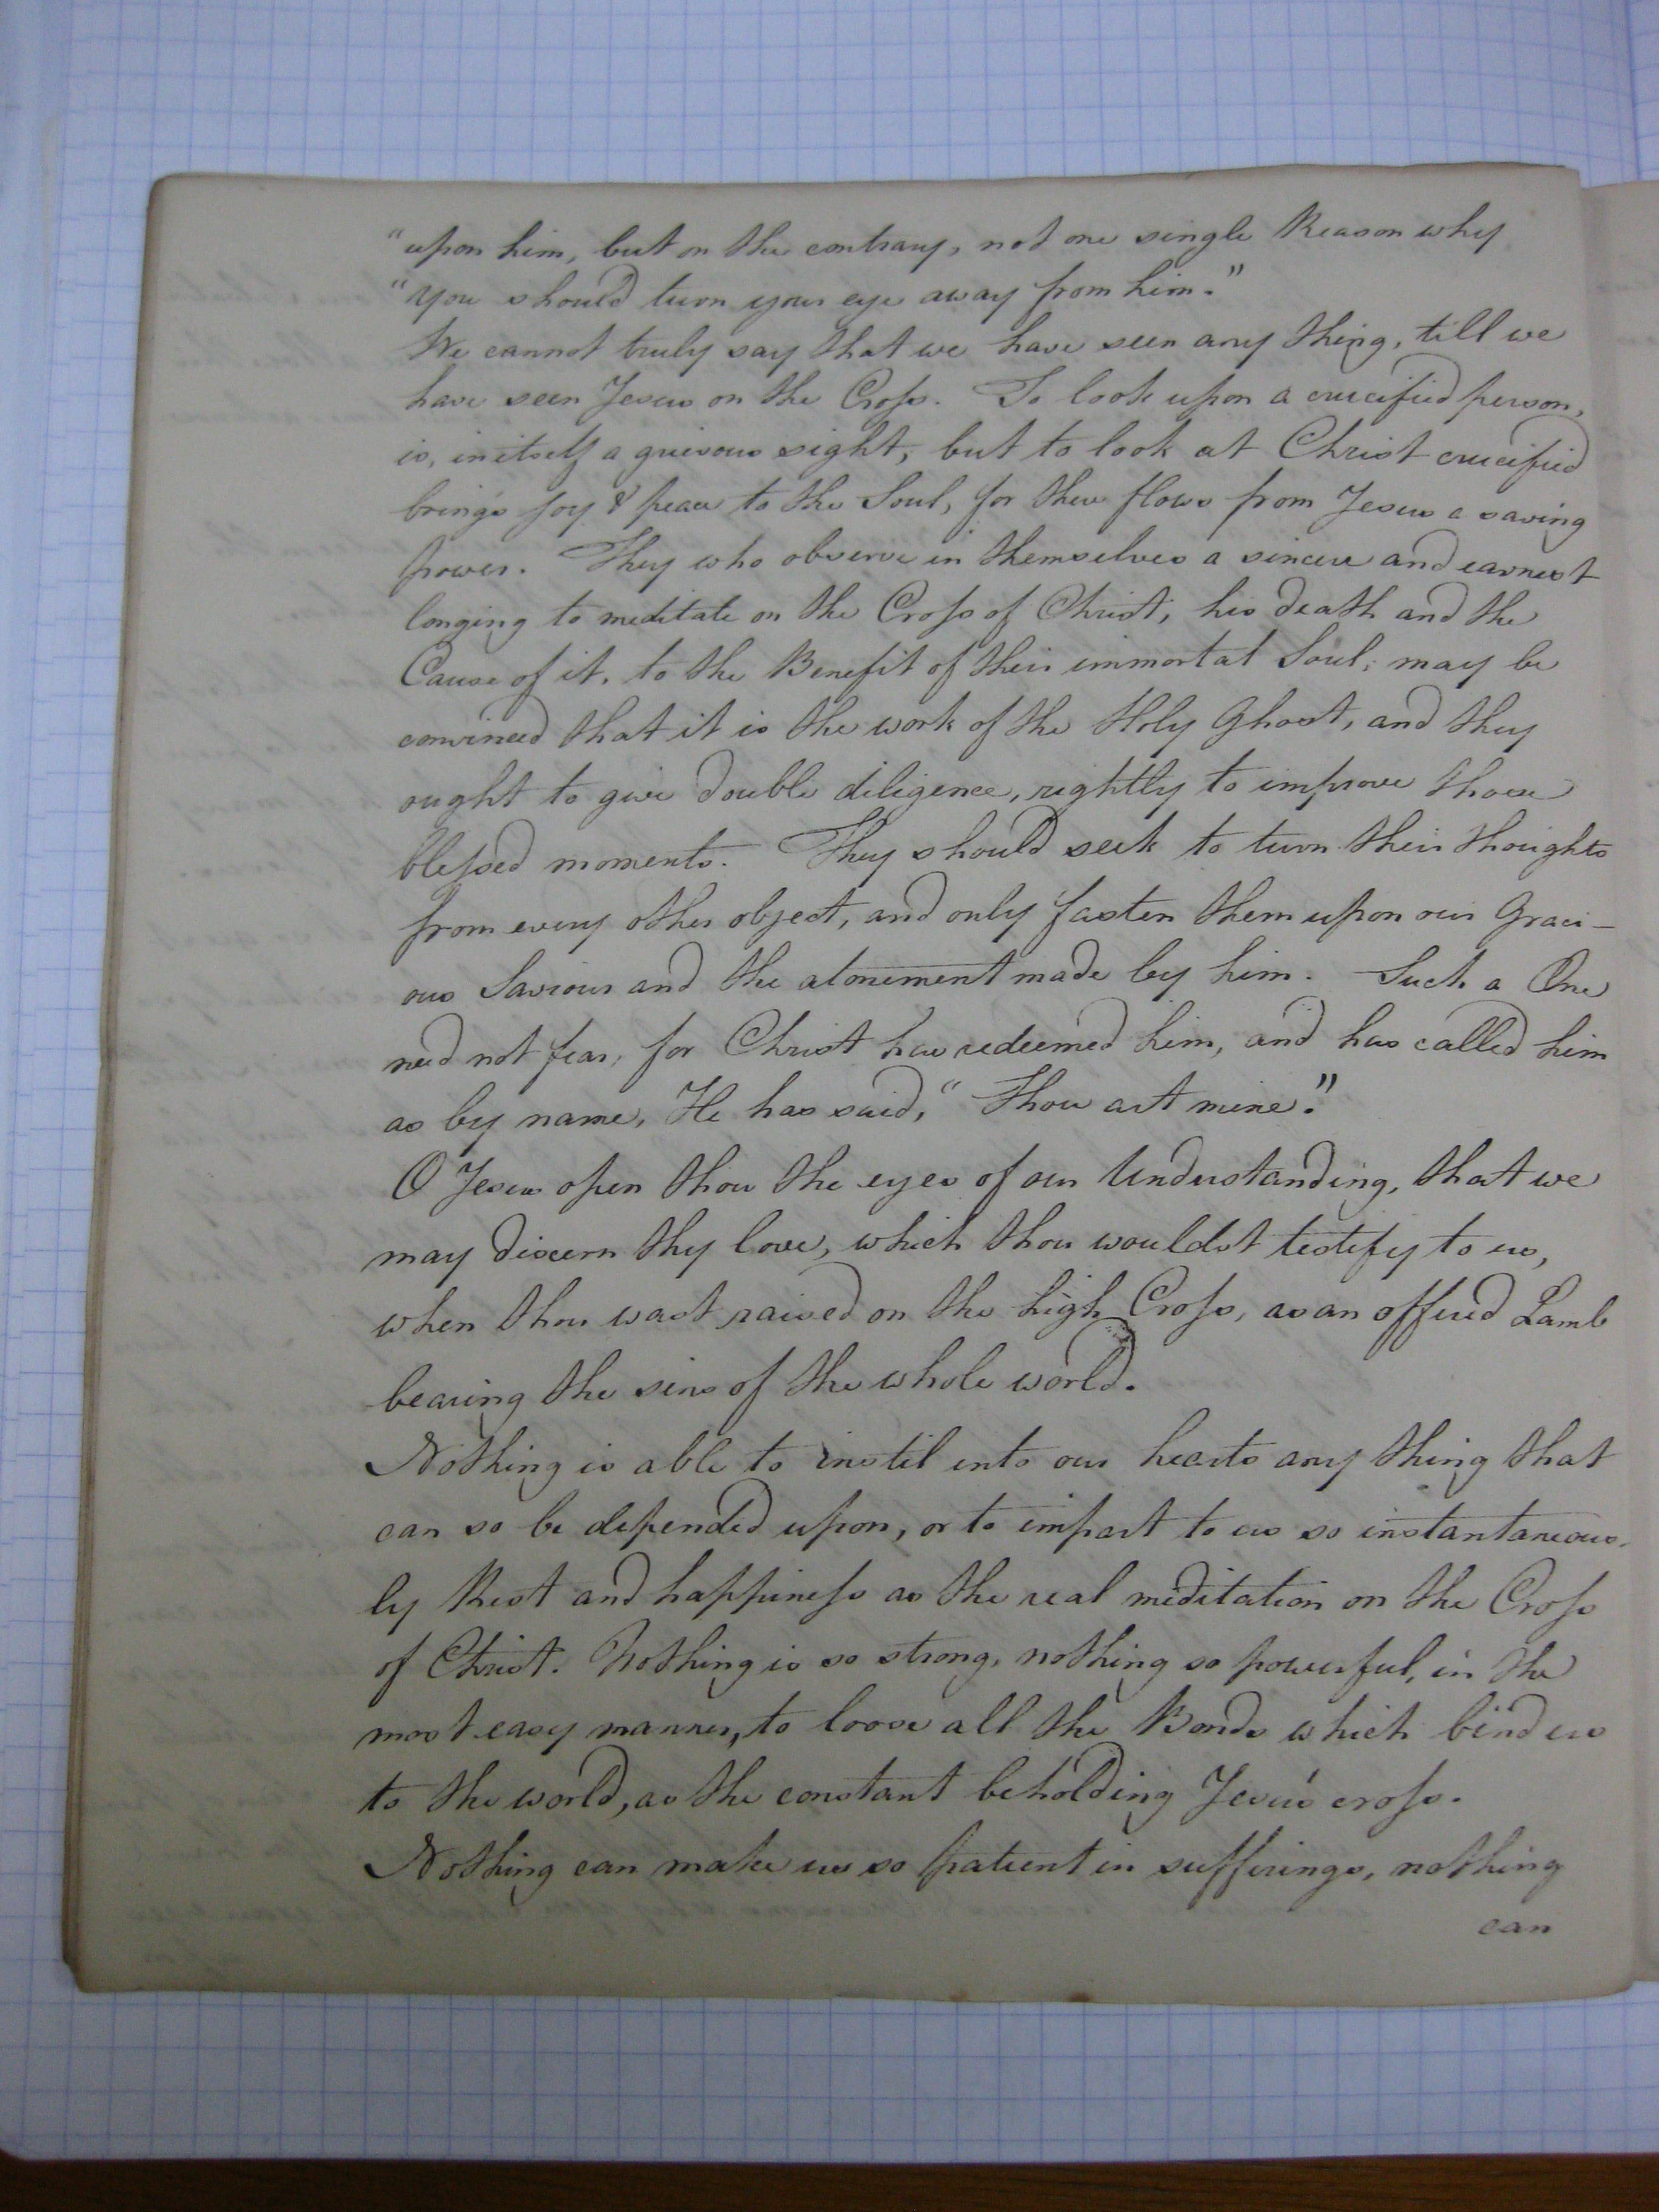 "upon him, but on the contrary, not one single Reason why
"you should turn your eye away from him."
We cannot truly say that we have seen any thing, till we
have seen Jesus on the Cross. To look upon a crucified person,
is, in itself a grievous sight, but to look at Christ crucified
brings joy & peace to the Soul, for there flows from Jesus a saving
power. They who observe in themselves a sincere and earnest
longing to meditate on the Cross of Christ, his death and the
Cause of it, to the Benefit of their immortal Soul; may be
convinced that it is the work of the Holy Ghost, and they
ought to give double diligence, rightly to improve those
blessed moments. They should seek to turn their thoughts
from every other object, and only fasten them upon our Graci-
ous Saviour and the atonement made by him. Such a One
need not fear, for Christ has redeemed him, and has called him
as by name, He has said, "Thou art mine."
O Jesus open thou the eyes of our Understanding, that we
may discern thy love, which thou wouldst testify to us,
when thou wast raised on the high Cross, as an offered Lamb
bearing the sins of the whole world.
Nothing is able to instil into our hearts any thing that
can so be depended upon, or to impart to us so instantaneous-
ly Rest and happiness as the real meditation on the Cross
of Christ. Nothing is so strong, nothing so powerful, in the
most easy manner, to loose all the Bonds which bind us
to the world, as the constant beholding Jesu's cross.
Nothing can make us so patient in sufferings, nothing
can